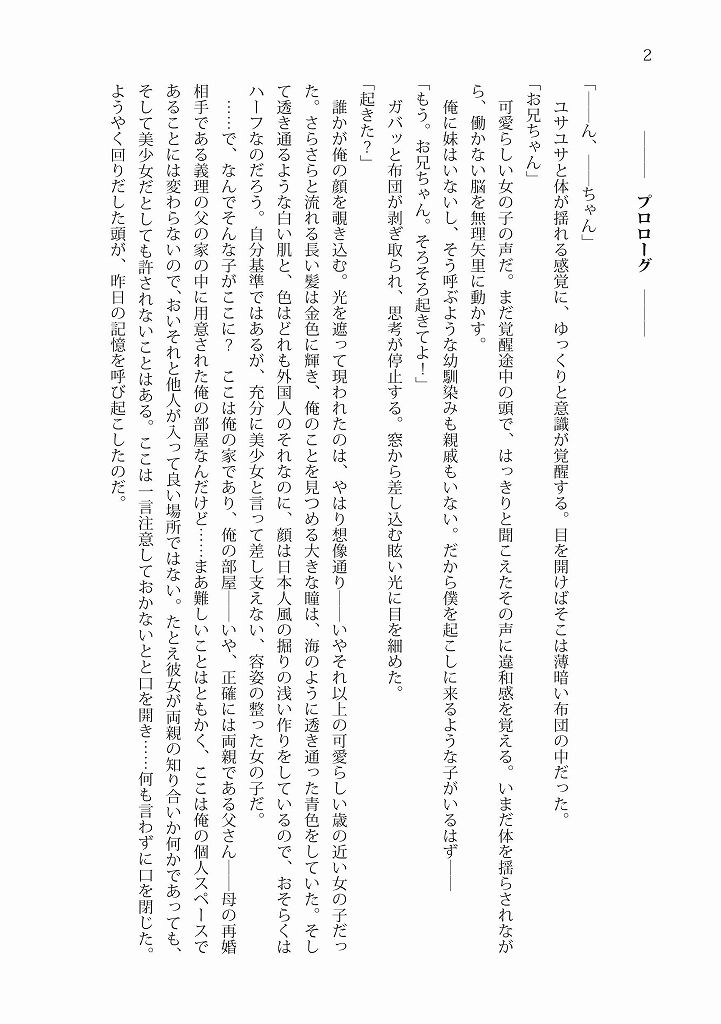 2
―― プロローグ ――
「――ん、――ちゃん」
ユサユサと体が揺れる感覚に、ゆっくりと意識が覚醒する。目を開けばそこは薄暗い布団の中だった。
「お兄ちゃん」
可愛らしい女の子の声だ。まだ覚醒途中の頭で、はっきりと聞こえたその声に違和感を覚える。いまだ体を揺らされなが
ら、働かない脳を無理矢理に動かす。
俺に妹はいないし、そう呼ぶような幼馴染みも親戚もいない。だから僕を起こしに来るような子がいるはず――
「もう。お兄ちゃん。そろそろ起きてよ！」
ガバッと布団が剥ぎ取られ、思考が停止する。窓から差し込む眩い光に目を細めた。
「起きた？」
誰かが俺の顔を覗き込む。光を遮って現われたのは、やはり想像通り――いやそれ以上の可愛らしい歳の近い女の子だっ
た。さらさらと流れる長い髪は金色に輝き、俺のことを見つめる大きな瞳は、海のように透き通った青色をしていた。そし
て透き通るような白い肌と、色はどれも外国人のそれなのに、顔は日本人風の掘りの浅い作りをしているので、おそらくは
ハーフなのだろう。自分基準ではあるが、充分に美少女と言って差し支えない、容姿の整った女の子だ。
……で、なんでそんな子がここに？　ここは俺の家であり、俺の部屋――いや、正確には両親である父さん――母の再婚
相手である義理の父の家の中に用意された俺の部屋なんだけど……まあ難しいことはともかく、ここは俺の個人スペースで
あることには変わらないので、おいそれと他人が入って良い場所ではない。たとえ彼女が両親の知り合いか何かであっても、
そして美少女だとしても許されないことはある。ここは一言注意しておかないとと口を開き……何も言わずに口を閉じた。
ようやく回りだした頭が、昨日の記憶を呼び起こしたのだ。